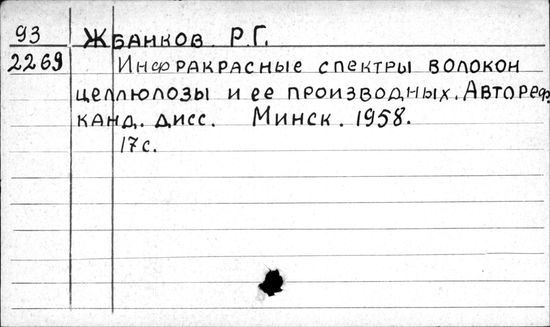 93 Жбанков Р.Г.
2269 Инфракрасные спектры волокон
целлюлозы и ее производных. Автореф.
канд. дисс. Минск. 1958.
17 с.